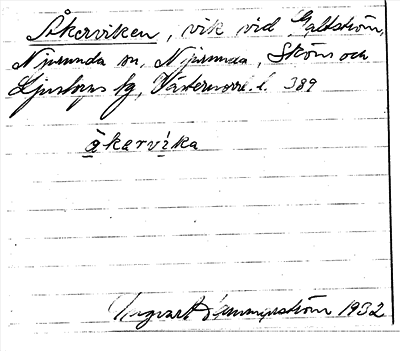 Åkerviken, vik vid Galtström,
Njurunda sn, Njurunda, Sköns och
Ljustorps tg, Västernorrl. l. 389
åkervika
Ingvart Hammarström 1932